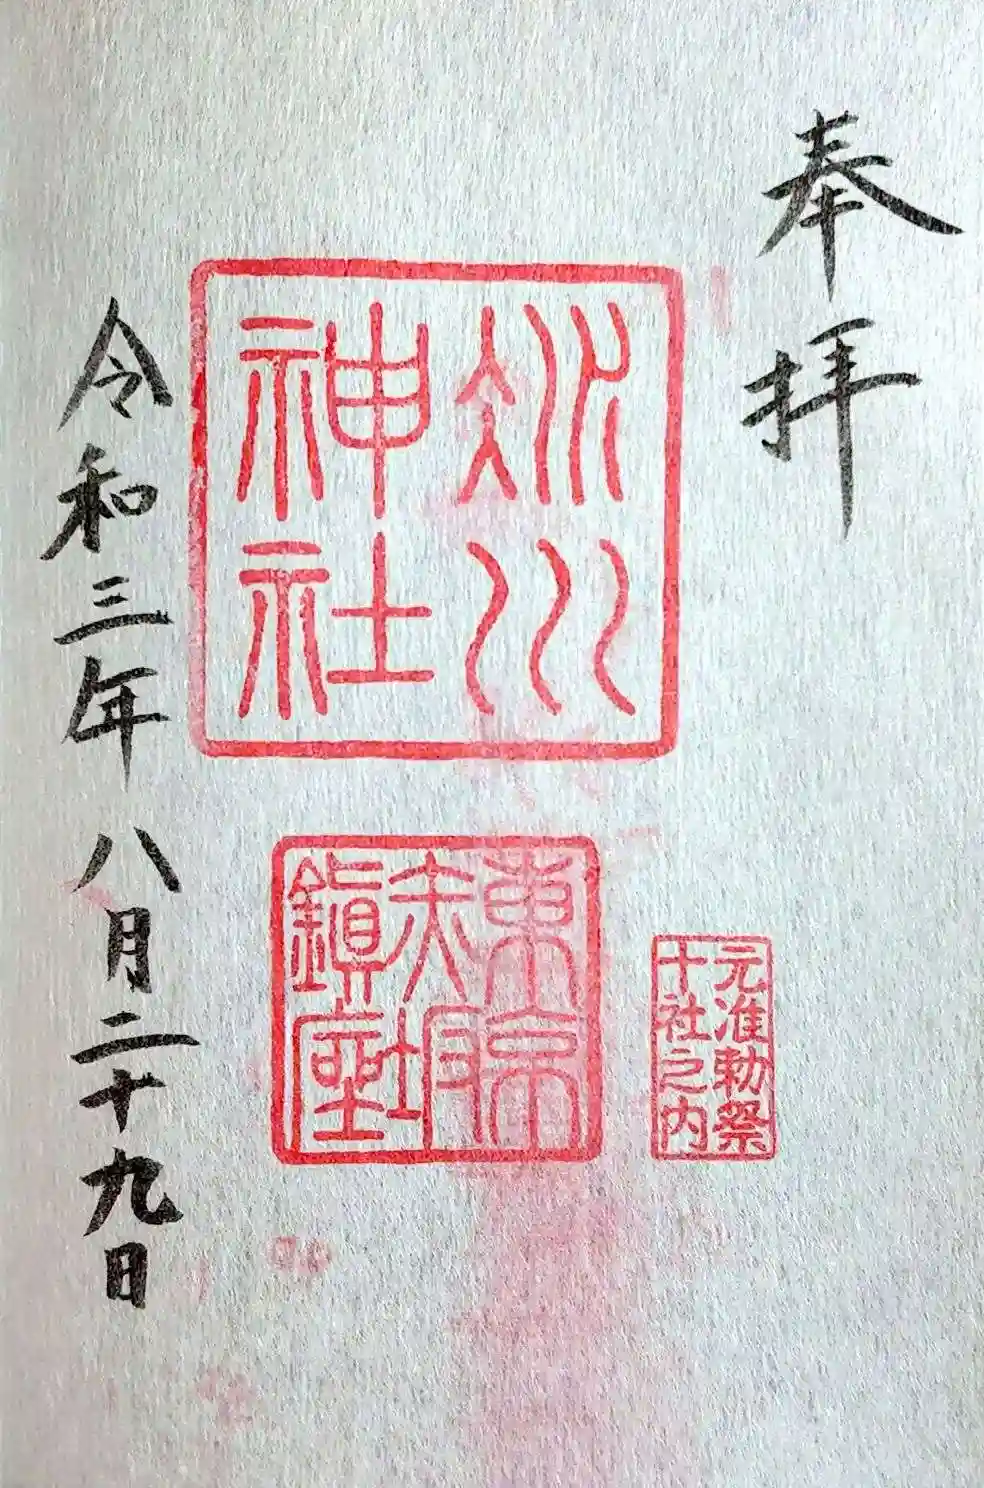 奉拝
冰川
神社
東京
赤坂
鎭座
元准勅祭
十社之内
令和三年八月二十九日